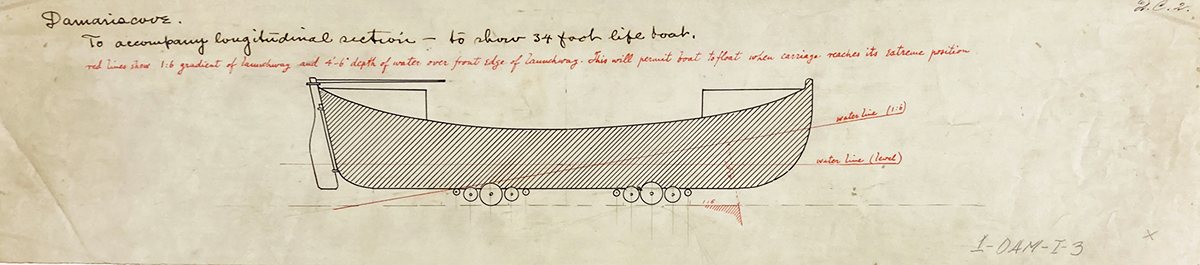 Damariscove.
H.C.2.
To accompany longitudinal section — to show 34 foot life boat.
red lines show 1:6 gradient of launchway and 4'-6" depth of water over front edge of launchway. This will permit boat to float when carriage reaches its extreme position
water line (1:6)
water line (level)
1:6
I-DAM-I-3
x